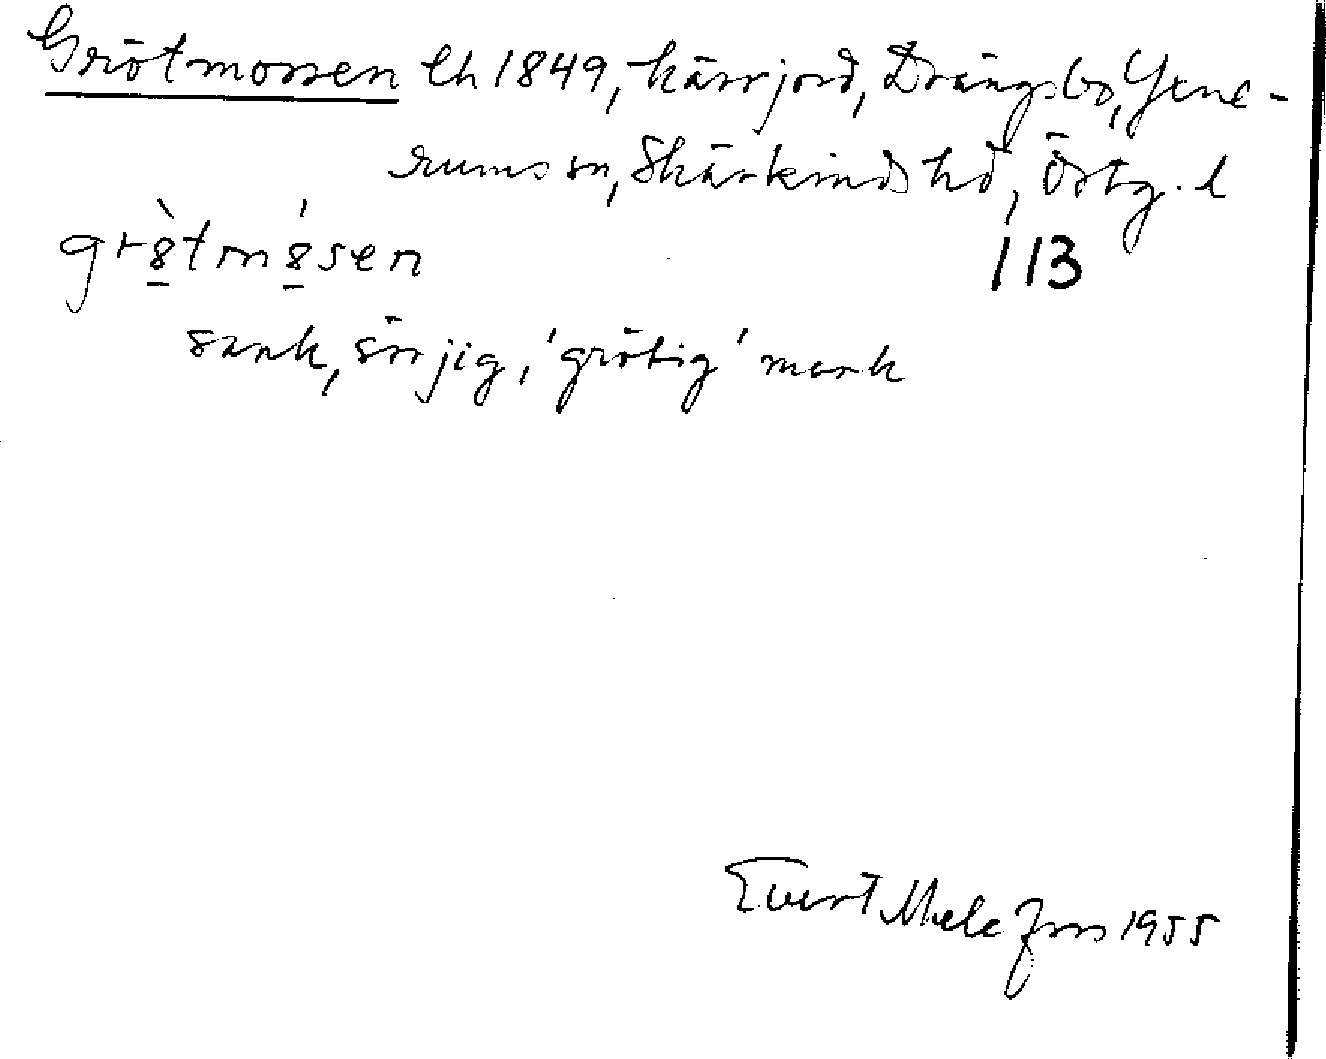 Grötmossen lh 1849, kärrjord, Drängsbo, Gene-
rums sn, Skärkinds hd, Östg. l
grö̀tmósen
113
sank, sörjig, 'grötig' mark
Evert Melefors 1955